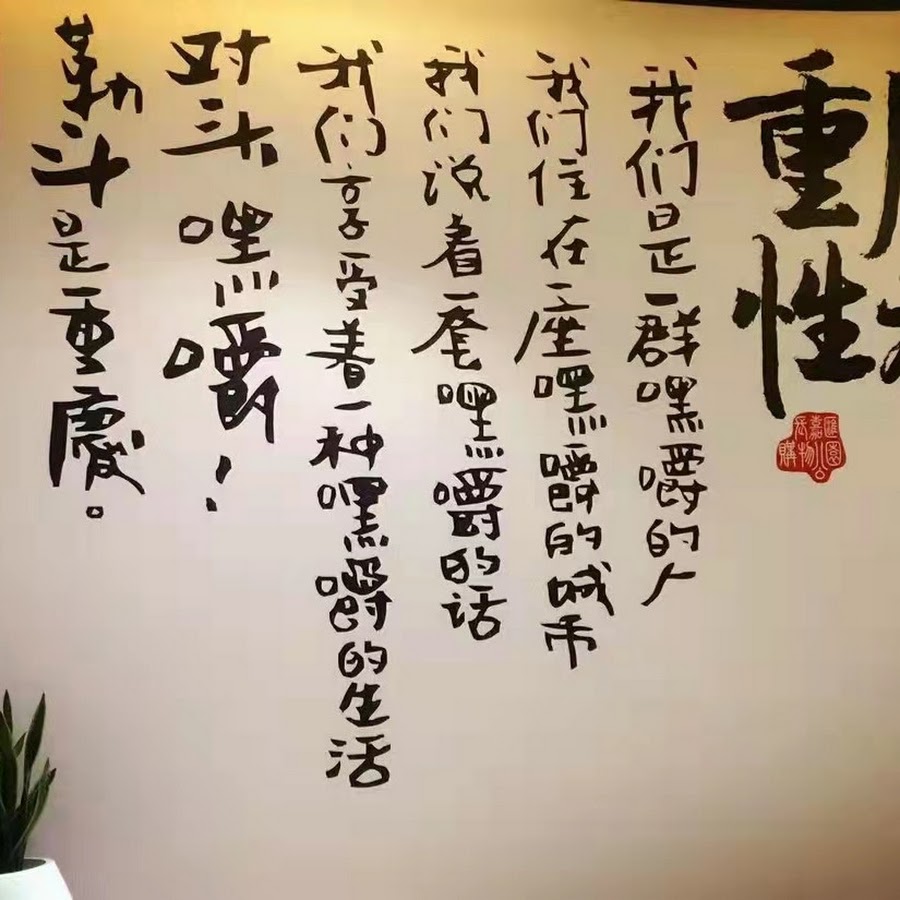 重性
長嘉匯
購物公園
我们是一群嘿嚼的人
我们住在一座嘿嚼的城市
我们说着一嘿嚼的话
我们享受着一种嘿嚼的生活
对头 嘿嚼！
勒斗是重慶。